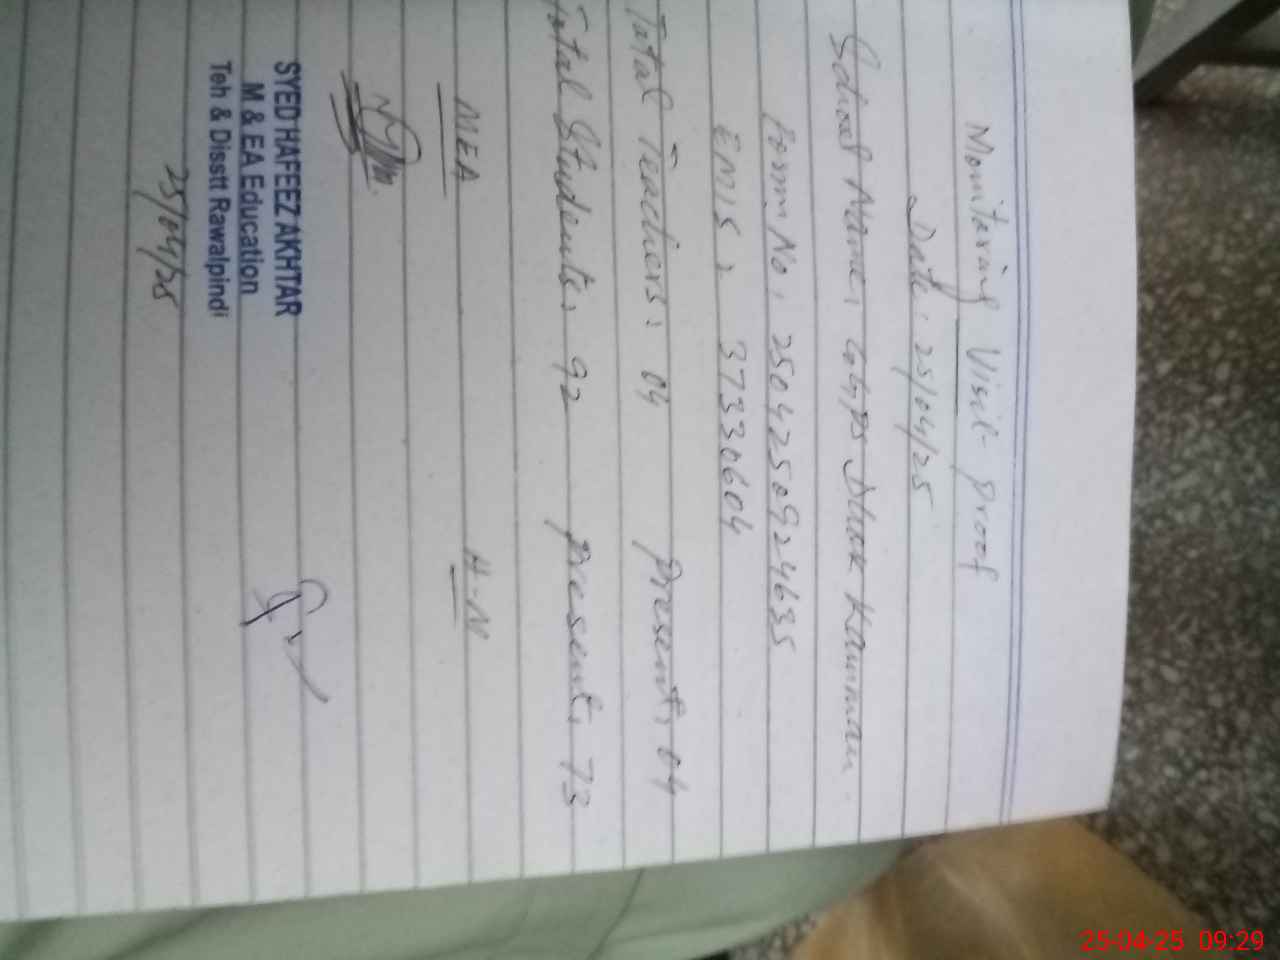 Monitoring Visit Proof
Date: 25/04/25
School Name: GGPS Dhok Kamman.
Form No: 2504250924635
EMIS: 37330604
Total Teachers: 04 Present: 04
Total Students: 92 Present: 73
MEA H-M
SYED HAFEEZ AKHTAR
M & EA Education
Teh & Disstt Rawalpindi
25/04/25
25-04-25 09:29